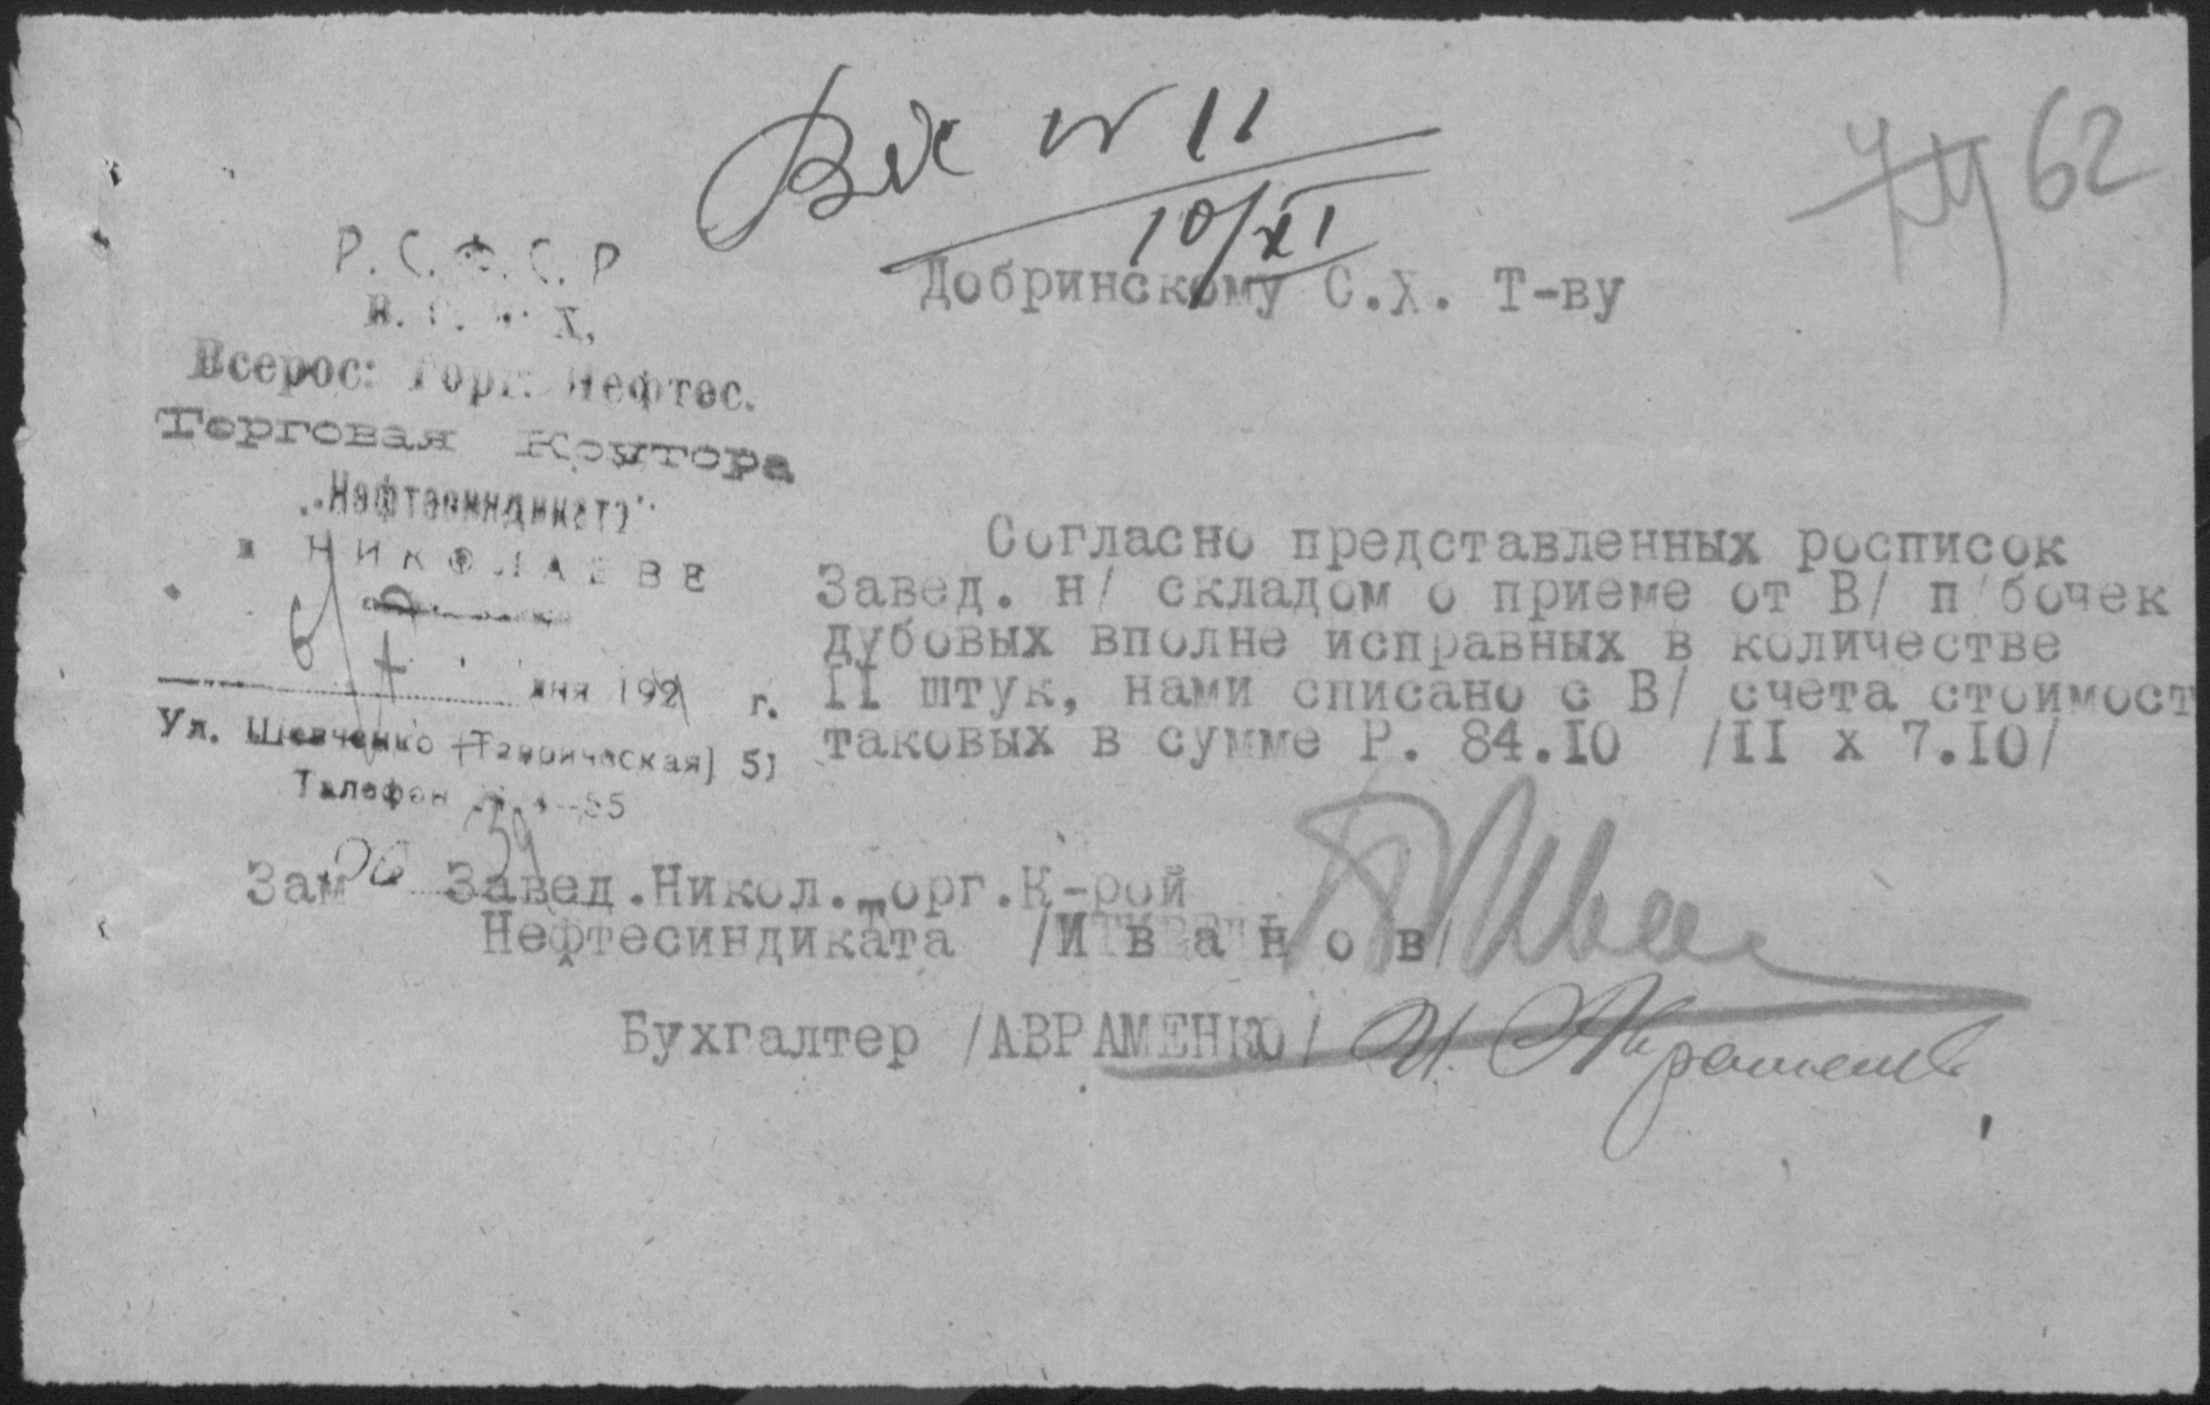 Вх № 11
10/XI
62
Р. С. Ф. С. Р
В. С. Н. Х.
Всерос: Торг: Нефтес.
Торговая Контора
„Нефтесиндиката"
в НИКОЛАЕВЕ
дня 192 г.
Ул. Шевченко (Таврическая) 51
Телефон
Добринскому С.Х. Т-ву
Согласно представленных росписок
Завед. н/ складом о приеме от В/ п/бочек
дубовых вполне исправных в количестве
II штук, нами списано с В/ счета стоимост
таковых в сумме Р. 84.I0 /II х 7.I0/
Зам Завед.Никол.Торг.К-рой
Нефтесиндиката /И в а н о в/
Бухгалтер /АВРАМЕНКО/